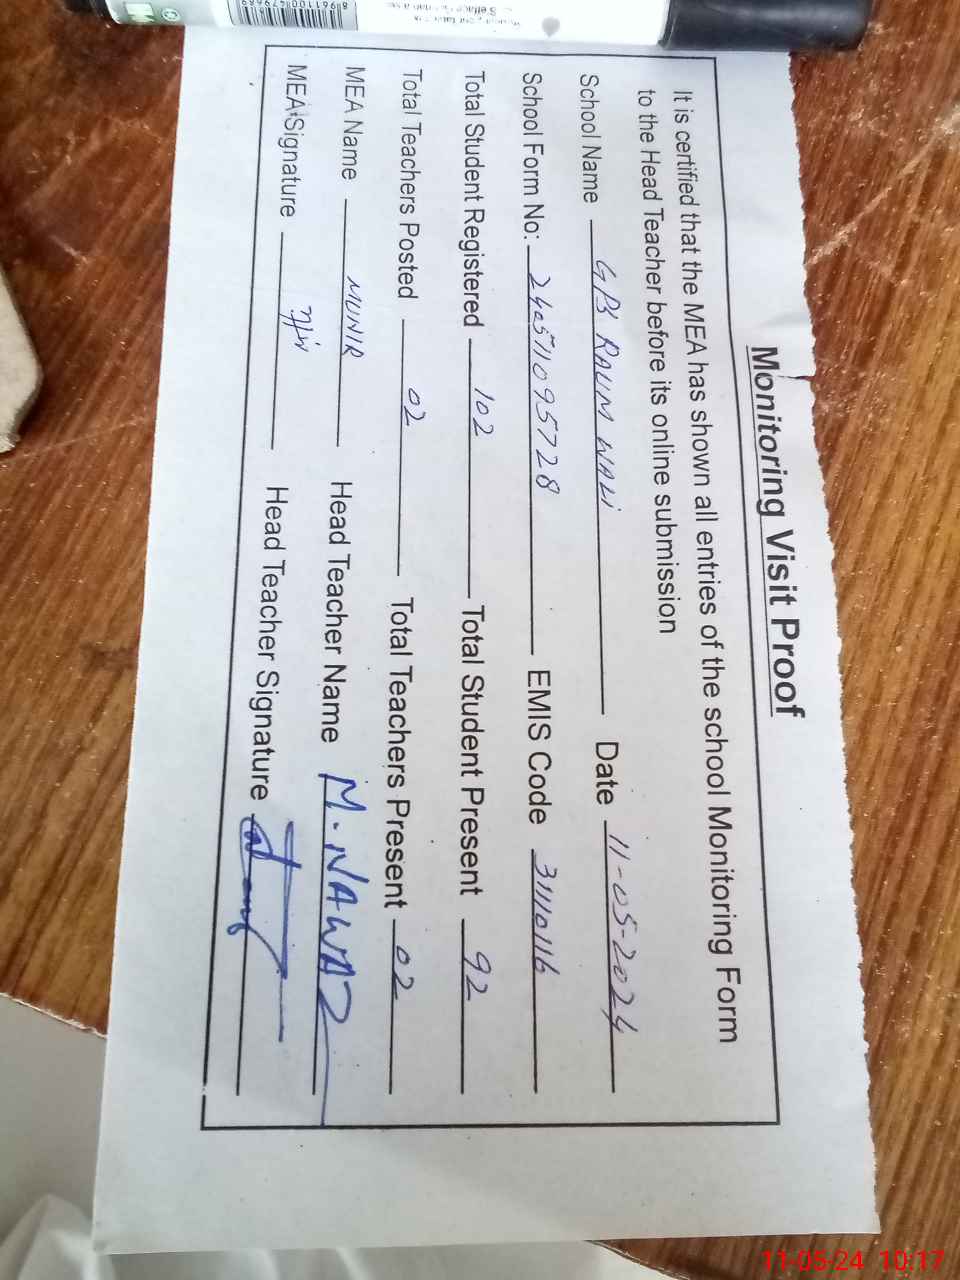 Monitoring Visit Proof
It is certified that the MEA has shown all entries of the school Monitoring Form
to the Head Teacher before its online submission
School Name GPS RAUM WALi Date 11-05-2024
School Form No: 2405711095728 EMIS Code 31110116
Total Student Registered 102 Total Student Present 92
Total Teachers Posted 02 Total Teachers Present 02
MEA Name MUNIR Head Teacher Name M. NAWAZ
MEA Signature Head Teacher Signature
11-05-24 10:17